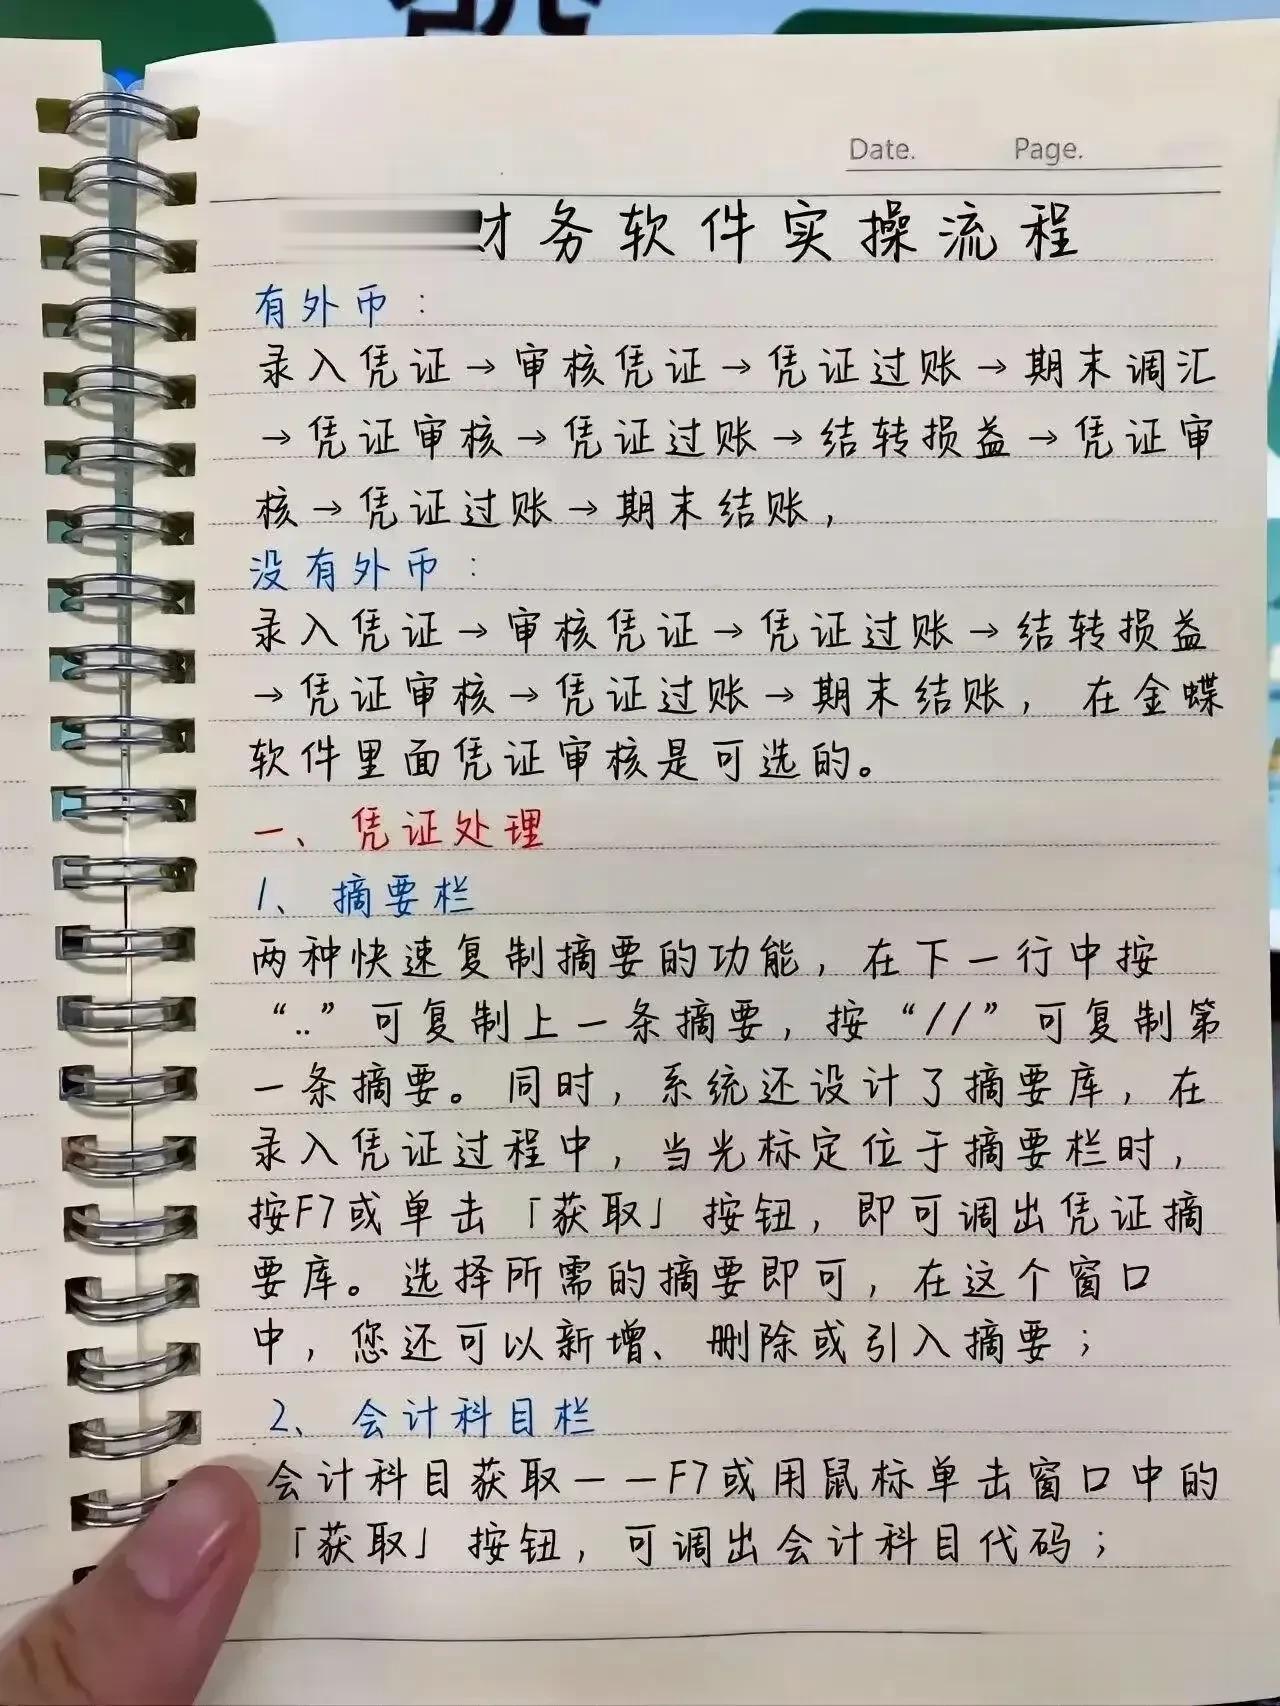 Date. Page.
财务软件实操流程
有外币：
录入凭证→审核凭证→凭证过账→期末调汇
→凭证审核→凭证过账→结转损益→凭证审
核→凭证过账→期末结账，
没有外币：
录入凭证→审核凭证→凭证过账→结转损益
→凭证审核→凭证过账→期末结账，在金蝶
软件里面凭证审核是可选的。
一、凭证处理
1、摘要栏
两种快速复制摘要的功能，在下一行中按
“..”可复制上一条摘要，按“//”可复制第
一条摘要。同时，系统还设计了摘要库，在
录入凭证过程中，当光标定位于摘要栏时，
按F7或单击「获取」按钮，即可调出凭证摘
要库。选择所需的摘要即可，在这个窗口
中，您还可以新增、删除或引入摘要；
2、会计科目栏
会计科目获取——F7或用鼠标单击窗口中的
「获取」按钮，可调出会计科目代码；